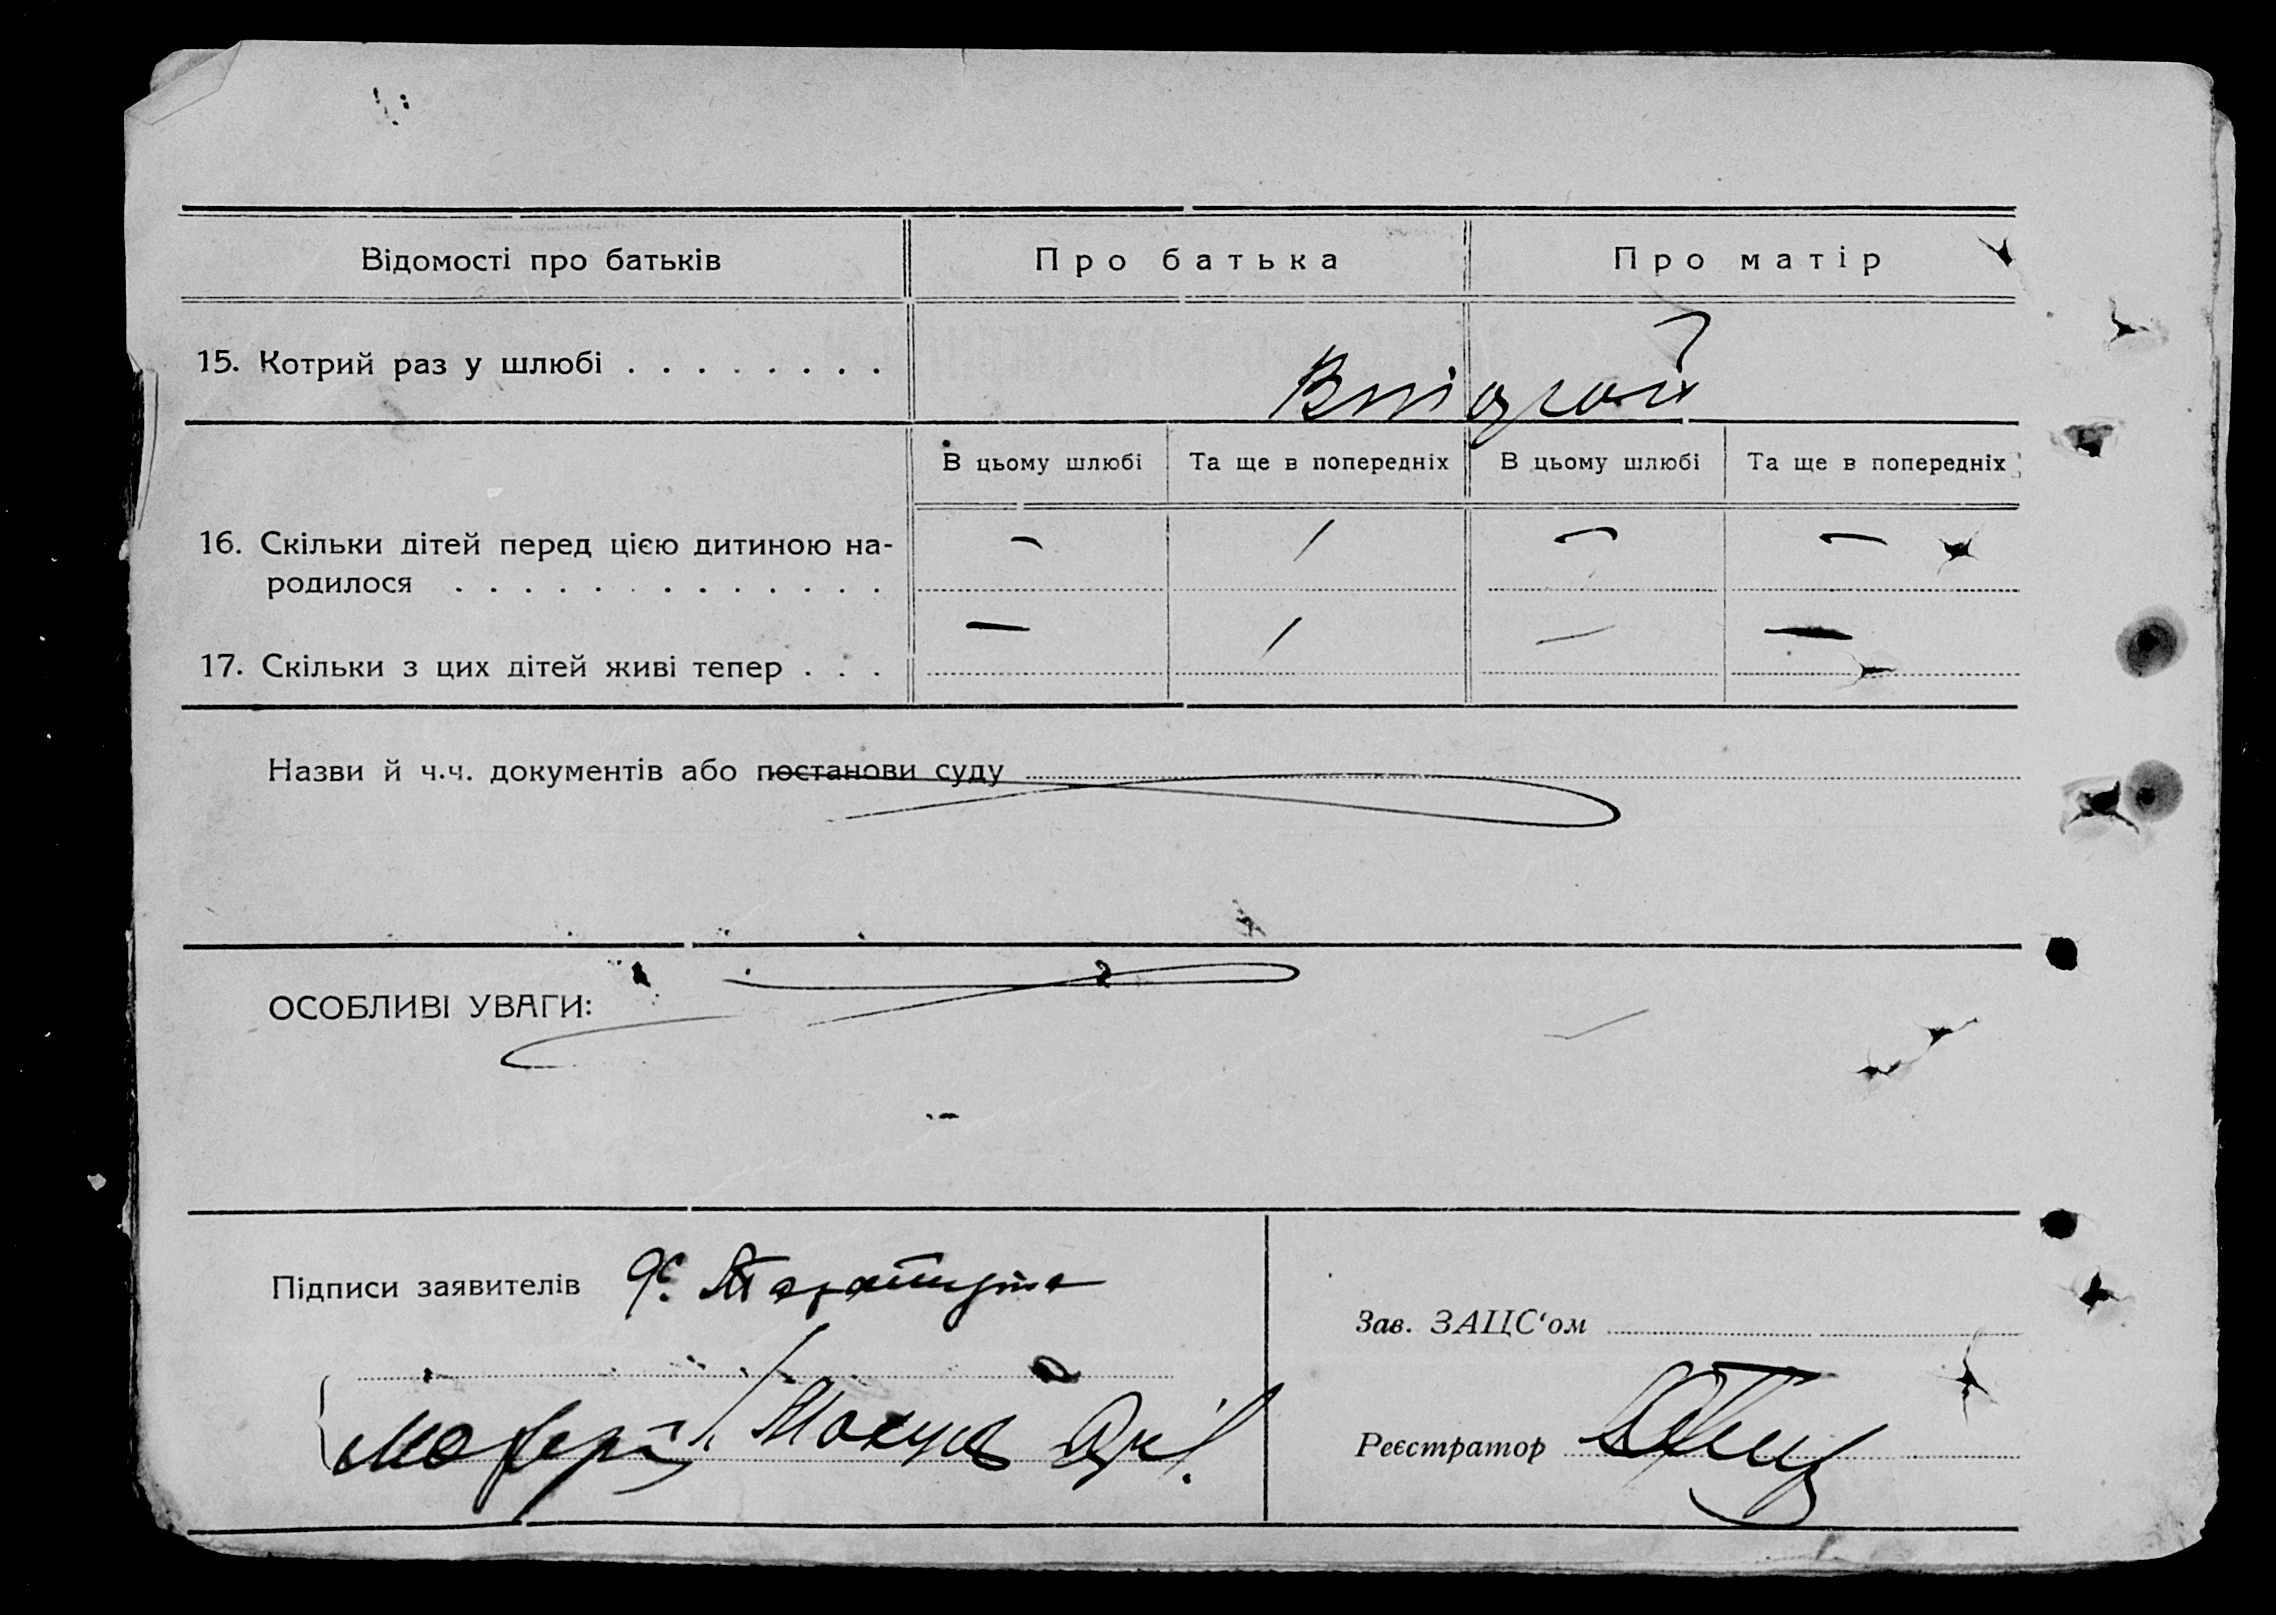 Відомості про батьків
Про батька
Про матір
15. Котрий раз у шлюбі . . . . . . . .
В цьому шлюбі
Та ще в попередніх
В цьому шлюбі
Та ще в попередніх
16. Скільки дітей перед цією дитиною на-
— / — —
родилося . . . . . . . . . . . . .
17. Скільки з цих дітей живі тепер . . .
— / — —
Назви й ч.ч. документів або постанови суду
ОСОБЛИВІ УВАГИ:
Підписи заявителів
Зав. ЗАЦС‘ом
Реєстратор